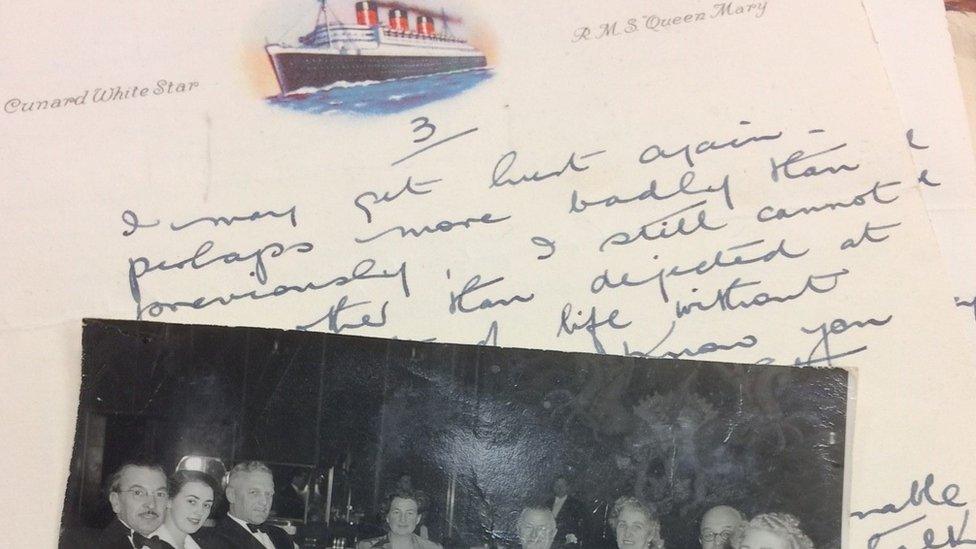 Cunard White Star
R.M.S. "Queen Mary"
3
I may get hurt again -
perhaps more badly than
previously, I still cannot
other than dejected at
life without
know you
nable
talk